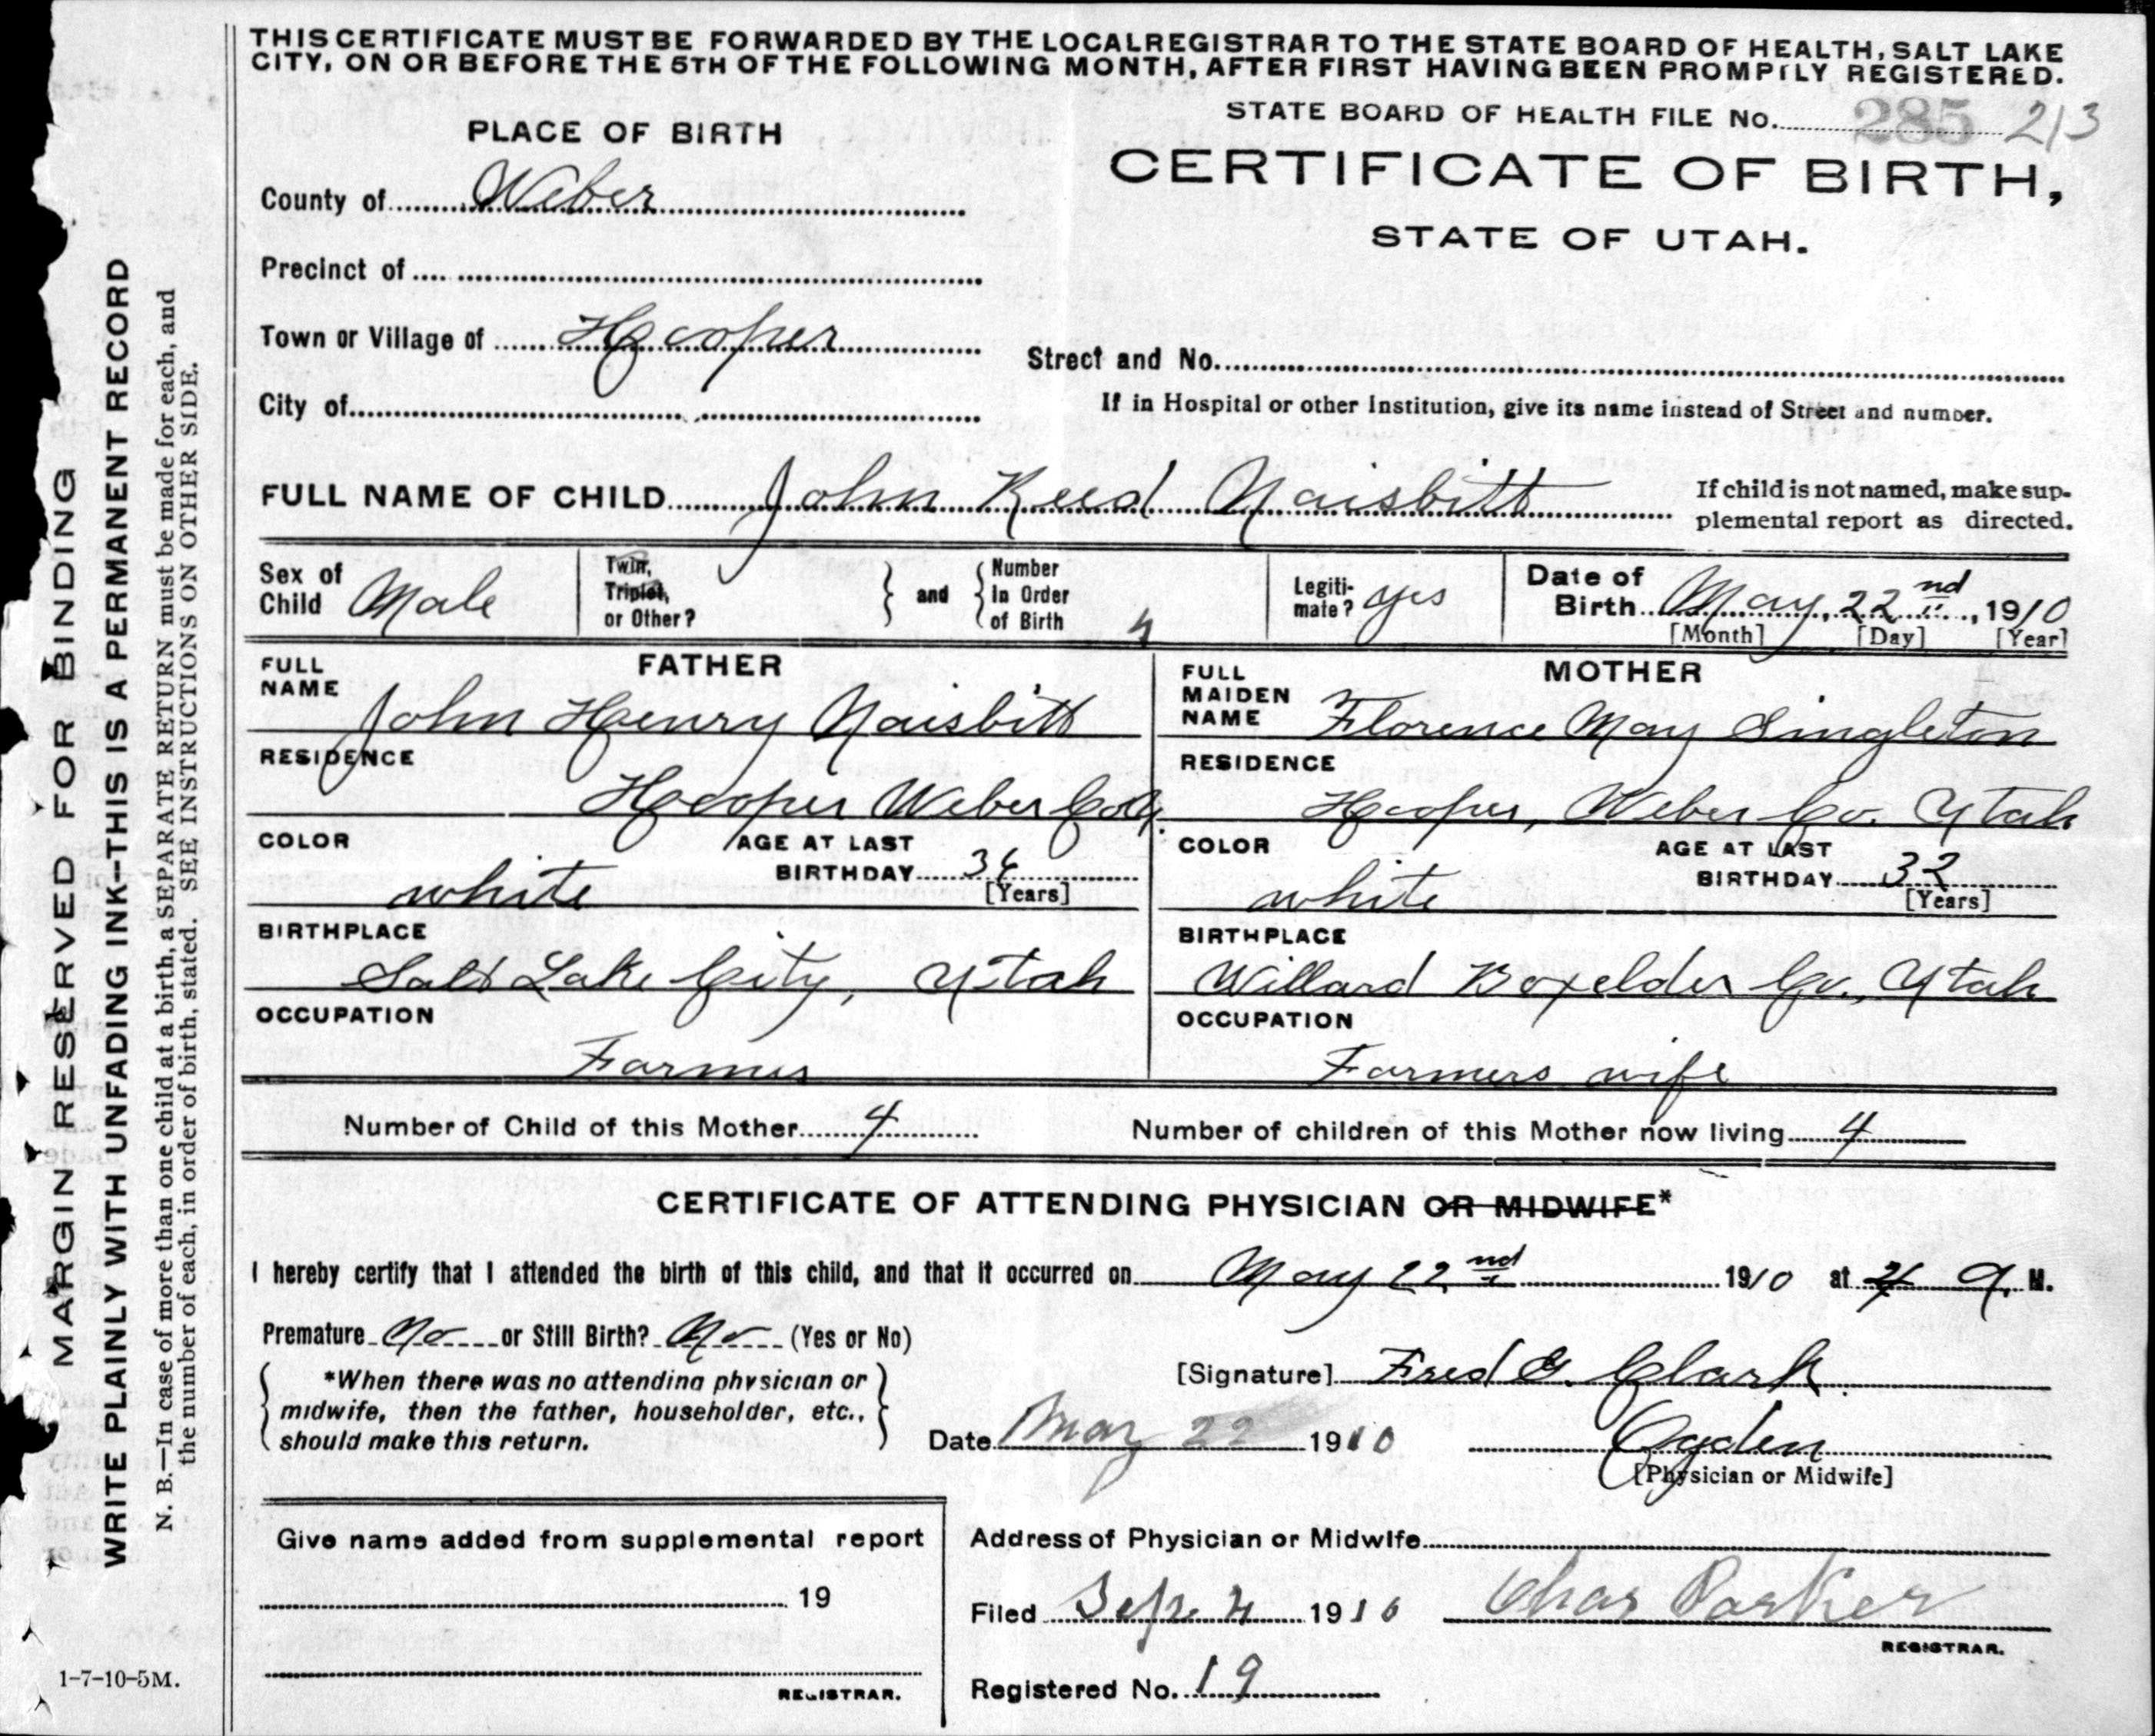 THIS CERTIFICATE MUST BE FORWARDED BY THE LOCAL REGISTRAR TO THE STATE BOARD OF HEALTH, SALT LAKE
CITY, ON OR BEFORE THE 5TH OF THE FOLLOWING MONTH, AFTER FIRST HAVING BEEN PROMPTLY REGISTERED.
STATE BOARD OF HEALTH FILE No. 285 213
PLACE OF BIRTH
CERTIFICATE OF BIRTH,
STATE OF UTAH.
County of Weber
Precinct of
Town or Village of Hooper
Street and No.
City of
If in Hospital or other Institution, give its name instead of Street and number.
FULL NAME OF CHILD John Reed Naisbitt
If child is not named, make sup-
plemental report as directed.
Sex of
Child Male
Twin,
Triplet,
or Other?
and
Number
In Order
of Birth 4
Legiti-
mate? yes
Date of
Birth May, 22nd, 1910
[Month] [Day] [Year]
FATHER
FULL
NAME
John Henry Naisbitt
RESIDENCE
Hooper Weber Co
COLOR
white
AGE AT LAST
BIRTHDAY
[Years]
BIRTHPLACE
Salt Lake City, Utah
OCCUPATION
Farmer
MOTHER
FULL
MAIDEN
NAME Florence May Singleton
RESIDENCE
Hooper, Weber Co. Utah
COLOR
white
AGE AT LAST
BIRTHDAY 32
[Years]
BIRTHPLACE
Willard Boxelder Co., Utah
OCCUPATION
Farmers wife
Number of Child of this Mother 4
Number of children of this Mother now living 4
CERTIFICATE OF ATTENDING PHYSICIAN OR MIDWIFE*
I hereby certify that I attended the birth of this child, and that it occurred on May 22nd 1910 at 4 a. M.
Premature No or Still Birth? No (Yes or No)
*When there was no attending physician or
midwife, then the father, householder, etc.,
should make this return.
[Signature] Fred G. Clark
Date May 22 1910
Ogden
[Physician or Midwife]
Give name added from supplemental report
19
REGISTRAR.
Address of Physician or Midwife
Filed Sep. 4 1910 Chas Parker
REGISTRAR.
Registered No. 19
MARGIN RESERVED FOR BINDING
WRITE PLAINLY WITH UNFADING INK--THIS IS A PERMANENT RECORD
N. B.—In case of more than one child at a birth, a SEPARATE RETURN must be made for each, and
the number of each, in order of birth, stated. SEE INSTRUCTIONS ON OTHER SIDE.
1-7-10-5M.